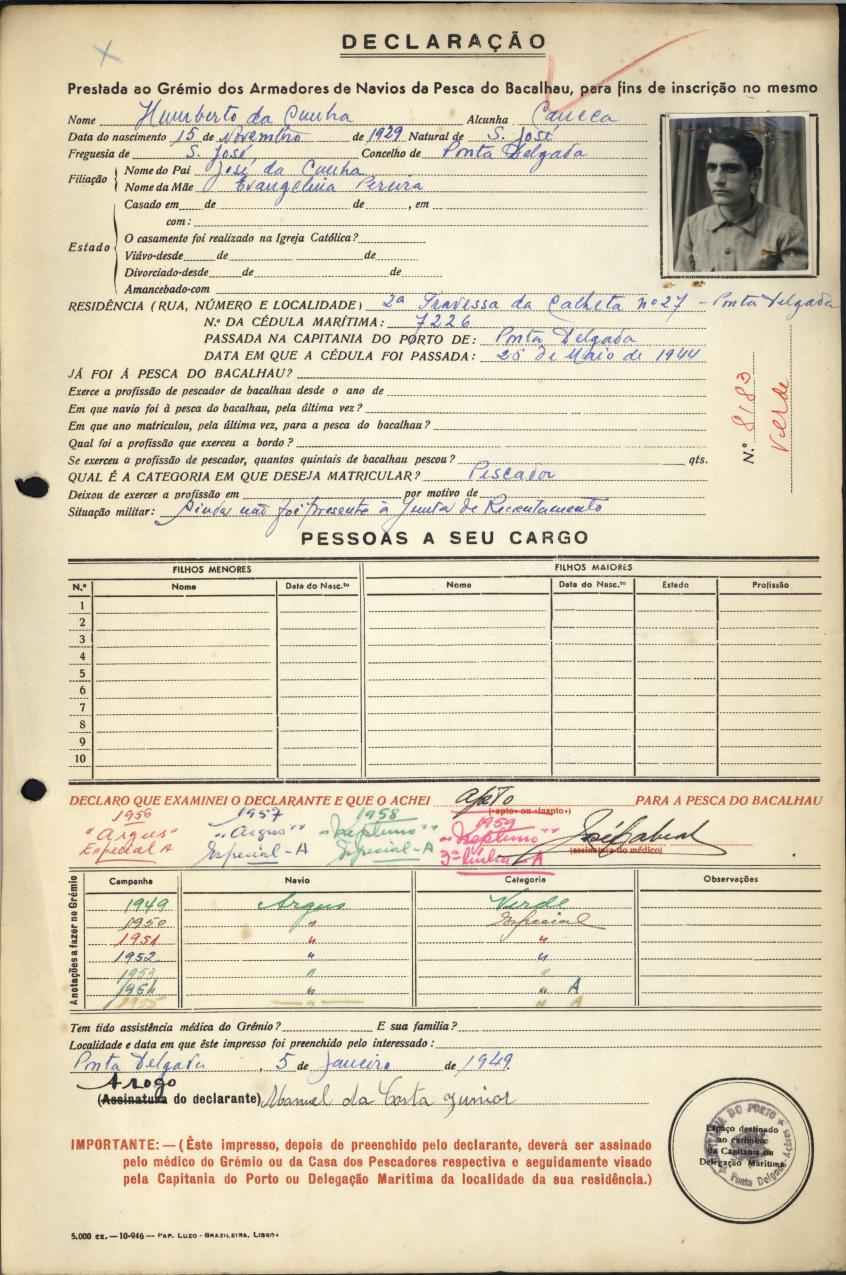 DECLARAÇÃO
Prestada ao Grémio dos Armadores de Navios da Pesca do Bacalhau, para fins de inscrição no mesmo
Nome Humberto da Cunha Alcunha Caneca
Data do nascimento 15 de Novembro de 1929 Natural de S. José
Freguesia de S. José Concelho de Ponta Delgada
Filiação Nome do Pai José da Cunha
Nome da Mãe Evangelina Pereira
Estado
Casado em de de , em
com:
O casamento foi realizado na Igreja Católica?
Viúvo-desde de de
Divorciado-desde de de
Amancebado-com
RESIDÊNCIA (RUA, NÚMERO E LOCALIDADE) 2a Travessa da Calheta nº 27 - Ponta Delgada
N.º DA CÉDULA MARÍTIMA: 7226
PASSADA NA CAPITANIA DO PORTO DE: Ponta Delgada
DATA EM QUE A CÉDULA FOI PASSADA: 25 de Maio de 1944
JÁ FOI Á PESCA DO BACALHAU?
Exerce a profissão de pescador de bacalhau desde o ano de
Em que navio foi à pesca do bacalhau, pela última vez?
Em que ano matriculou, pela última vez, para a pesca do bacalhau?
Qual foi a profissão que exerceu a bordo?
Se exerceu a profissão de pescador, quantos quintais de bacalhau pescou? qts.
QUAL É A CATEGORIA EM QUE DESEJA MATRICULAR? Pescador
Deixou de exercer a profissão em por motivo de
Situação militar: Ainda não foi presente à Junta de Recrutamento
N.º 8183
Verde
PESSOAS A SEU CARGO
FILHOS MENORES FILHOS MAIORES
N.º Nome Data do Nasc.to Nome Data do Nasc.to Estado Profissão
1
2
3
4
5
6
7
8
9
10
DECLARO QUE EXAMINEI O DECLARANTE E QUE O ACHEI apto PARA A PESCA DO BACALHAU
(«apto» ou «inapto»)
1956 1957 1958 1959
"Argus" "Argus" "Neptuno" "Neptuno"
Especial A Especial-A Especial-A 3ª linha A
José Cabral
(assinatura do médico)
Anotações a fazer no Grémio
Campanha Navio Categoria Observações
1949 Argus Verde
1950 " Especial
1951 " "
1952 " "
1953 " "
1954 " " A
1955 — " — " A
Tem tido assistência médica do Grémio? E sua família?
Localidade e data em que êste impresso foi preenchido pelo interessado:
Ponta Delgada , 5 de Janeiro de 1949
Arogo
(Assinatura do declarante) Manuel da Costa Junior
IMPORTANTE: — (Êste impresso, depois de preenchido pelo declarante, deverá ser assinado
pelo médico do Grémio ou da Casa dos Pescadores respectiva e seguidamente visado
pela Capitania do Porto ou Delegação Marítima da localidade da sua residência.)
Espaço destinado
ao carimbo
da Capitania ou
Delegação Marítima
CAPITANIA DO PORTO
Ponta Delgada-Açores
5.000 ex. — 10-946 — PAP. LUZO-BRAZILEIRA, LISBOA